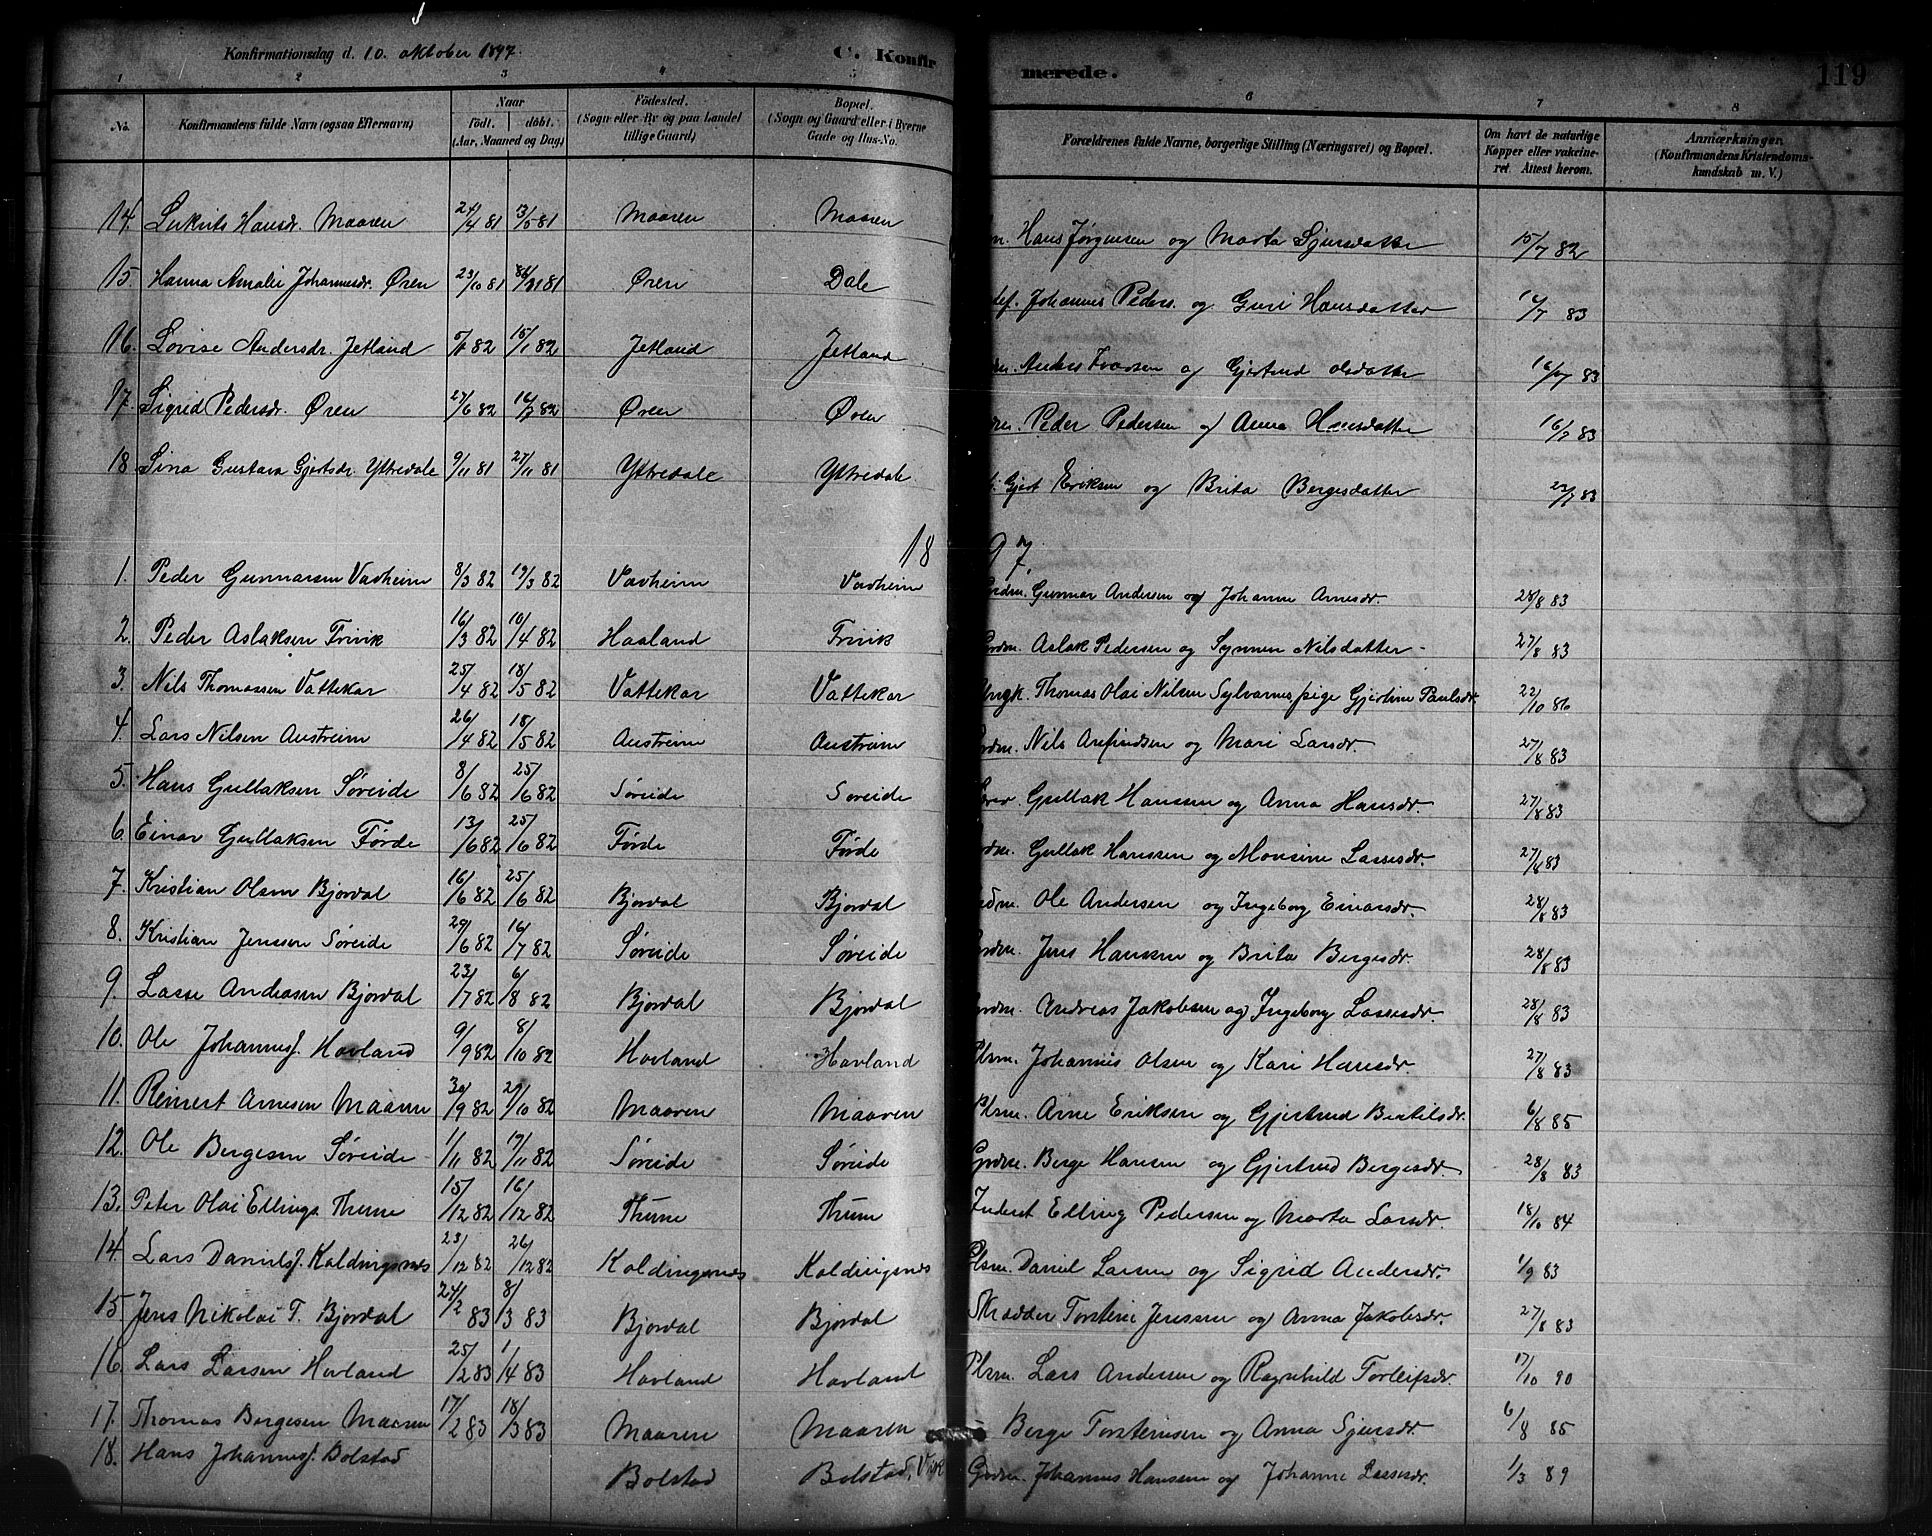 Konfirmationsdag d. 10. oktober 1897. C. Konfirmerede. 119
1 2 3 4 5 6 7 8
No. Konfirmandens fulde Navn (ogsaa Efternavn) Naar födt. döbt. (Aar, Maaned og Dag) Födested. (Sogn eller By og paa Landet tillige Gaard) Bopæl. (Sogn og Gaard eller i Byerne Gade og Hus-No. Forældrenes fulde Navne, borgerlige Stilling (Næringsvei) og Bopæl. Om havt de naturlige Kopper eller vakcineret. Attest herom. Anmærkninger. (Konfirmandens Kristendomskundskab m. V.)
14. Hansdr. Maaren 24/4 81 13/5 81 Maaren Maaren Hans Jørgensen og Marta Sjursdatter 15/7 82
15. Hanna Amalie Johannesdr. Øren 23/10 81 81 Øren Dale Johannes Peders. og Guri Hansdatter 83
16. Lovise Andersdr. Jetland 82 15/1 82 Jetland Jetland Anders Ivarsen og Gjertrud Olsdatter 83
17. Sigrid Pedersdr. Øren 27/6 82 16/7 82 Øren Øren Peder Pedersen og Anna Hansdatter 16/7 83
18 Sina Gustava Gjertsdr. Yttredale 9/11 81 27/11 81 Yttredale Yttredale Gjert Eriksen og Brita Bergesdatter 83
1897.
1. Peder Gunnarsen Vadheim 8/3 82 19/3 82 Vadheim Vadheim Grdm. Gunnar Andersen og Johanne Arnesdr. 28/8 83
2. Peder Aslaksen Trivik 16/3 82 10/4 82 Haaland Trivik Grdm. Aslak Pedersen og Synnen Nilsdatter 27/8 83
3. Nils Thomassen Vattekar 25/4 82 18/5 82 Vattekar Vattekar Ungk. Thomas Olai Nilsen Sylvarnes, pige Gjertine Paulsdr. 22/10 86
4. Lars Nilsen Austreim 26/4 82 18/5 82 Austreim Austreim Grdm. Nils Arfindsen og Mari Larsdr. 27/8 83
5. Hans Gullaksen Søreide 8/6 82 25/6 82 Søreide Søreide Gullak Hansen og Anna Hansdr. 27/8 83
6. Einar Gullaksen Førde 13/6 82 25/6 82 Førde Førde Grdm. Gullak Hanssen og Monsine Lassesdr. 27/8 83
7. Kristian Olsen Bjordal 16/6 82 25/6 82 Bjordal Bjordal Grdm. Ole Andersen og Ingeborg Einarsdr. 28/8 83
8. Kristian Jenssen Søreide 29/6 82 16/7 82 Søreide Søreide Grdm. Jens Hansen og Brita Bergesdr. 28/8 83
9. Lasse Andreasen Bjordal 23/7 82 6/8 82 Bjordal Bjordal Grdm. Andreas Jakobsen og Ingeborg Lassesdr. 28/8 83
10. Ole Johannesf. Hovland 9/9 82 8/10 82 Hovland Hovland Plsm. Johannes Olsen og Kari Hansdr. 27/8 83
11. Reinert Arnesen Maaren 30/9 82 29/10 82 Maaren Maaren Plsm. Arne Eriksen og Gjertrud Bertilsdr. 6/8 85
12. Ole Bergesen Søreide 1/11 82 19/11 82 Søreide Søreide Grdm. Berge Hansen og Gjertrud Bergesdr. 28/8 83
13. Peter Olai Ellings Thune 15/12 82 16/12 82 Thune Thune Inderst Elling Pedersen og Marta Larsdr. 18/10 84
14. Lars Danielsf. Koldingsnes 23/12 82 26/12 82 Koldingsnes Koldingsnes Plsm. Daniel Larsen og Sigrid Andersdr. 1/9 83
15. Jens Nikolai T. Bjordal 24/2 83 8/3 83 Bjordal Bjordal Skrædder Torstein Jenssen og Anna Jakobsdr. 27/8 83
16. Lars Larsen Hovland 25/2 83 1/4 83 Hovland Hovland Plsm. Lars Andersen og Ragnhild Torleifsdr. 17/10 90
17. Thomas Bergesen Maaren 17/2 83 18/3 83 Maaren Maaren Berge Torsteinsen og Anna Sjursdr. 6/8 85
18. Hans Johannesf. Bolstad Bolstad Bolstad, Vik Grdm. Johannes Hanssen og Johanne Lassesdr. 1/3 89